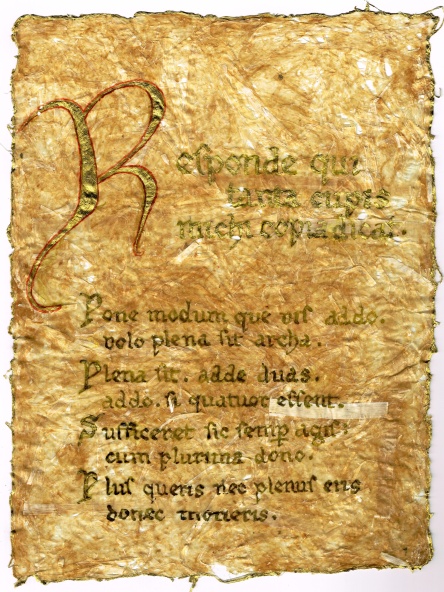 Responde qui
tanta cupis
michi copia dicat.
Pone modum que vis addo.
volo plena sit archa.
Plena sit. adde duas.
addo. si quatuor essent.
Sufficeret sic semp agis:
cum plurima dono.
Plus queris nec plenus eris
donec morieris.